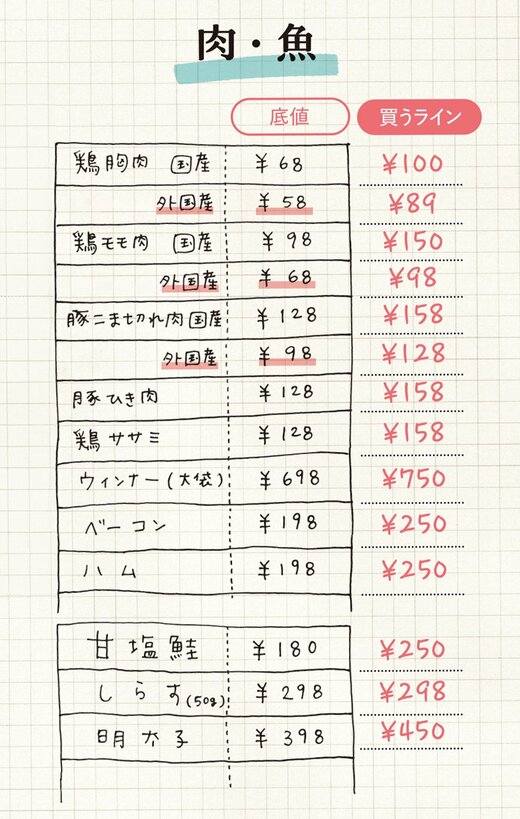 肉・魚
底値 買うライン
鶏胸肉 国産 ¥68 ¥100
外国産 ¥58 ¥89
鶏モモ肉 国産 ¥98 ¥150
外国産 ¥68 ¥98
豚こま切れ肉国産 ¥128 ¥158
外国産 ¥98 ¥128
豚ひき肉 ¥128 ¥158
鶏ササミ ¥128 ¥158
ウィンナー(大袋) ¥698 ¥750
ベーコン ¥198 ¥250
ハム ¥198 ¥250
甘塩鮭 ¥180 ¥250
しらす(50g) ¥298 ¥298
明太子 ¥398 ¥450